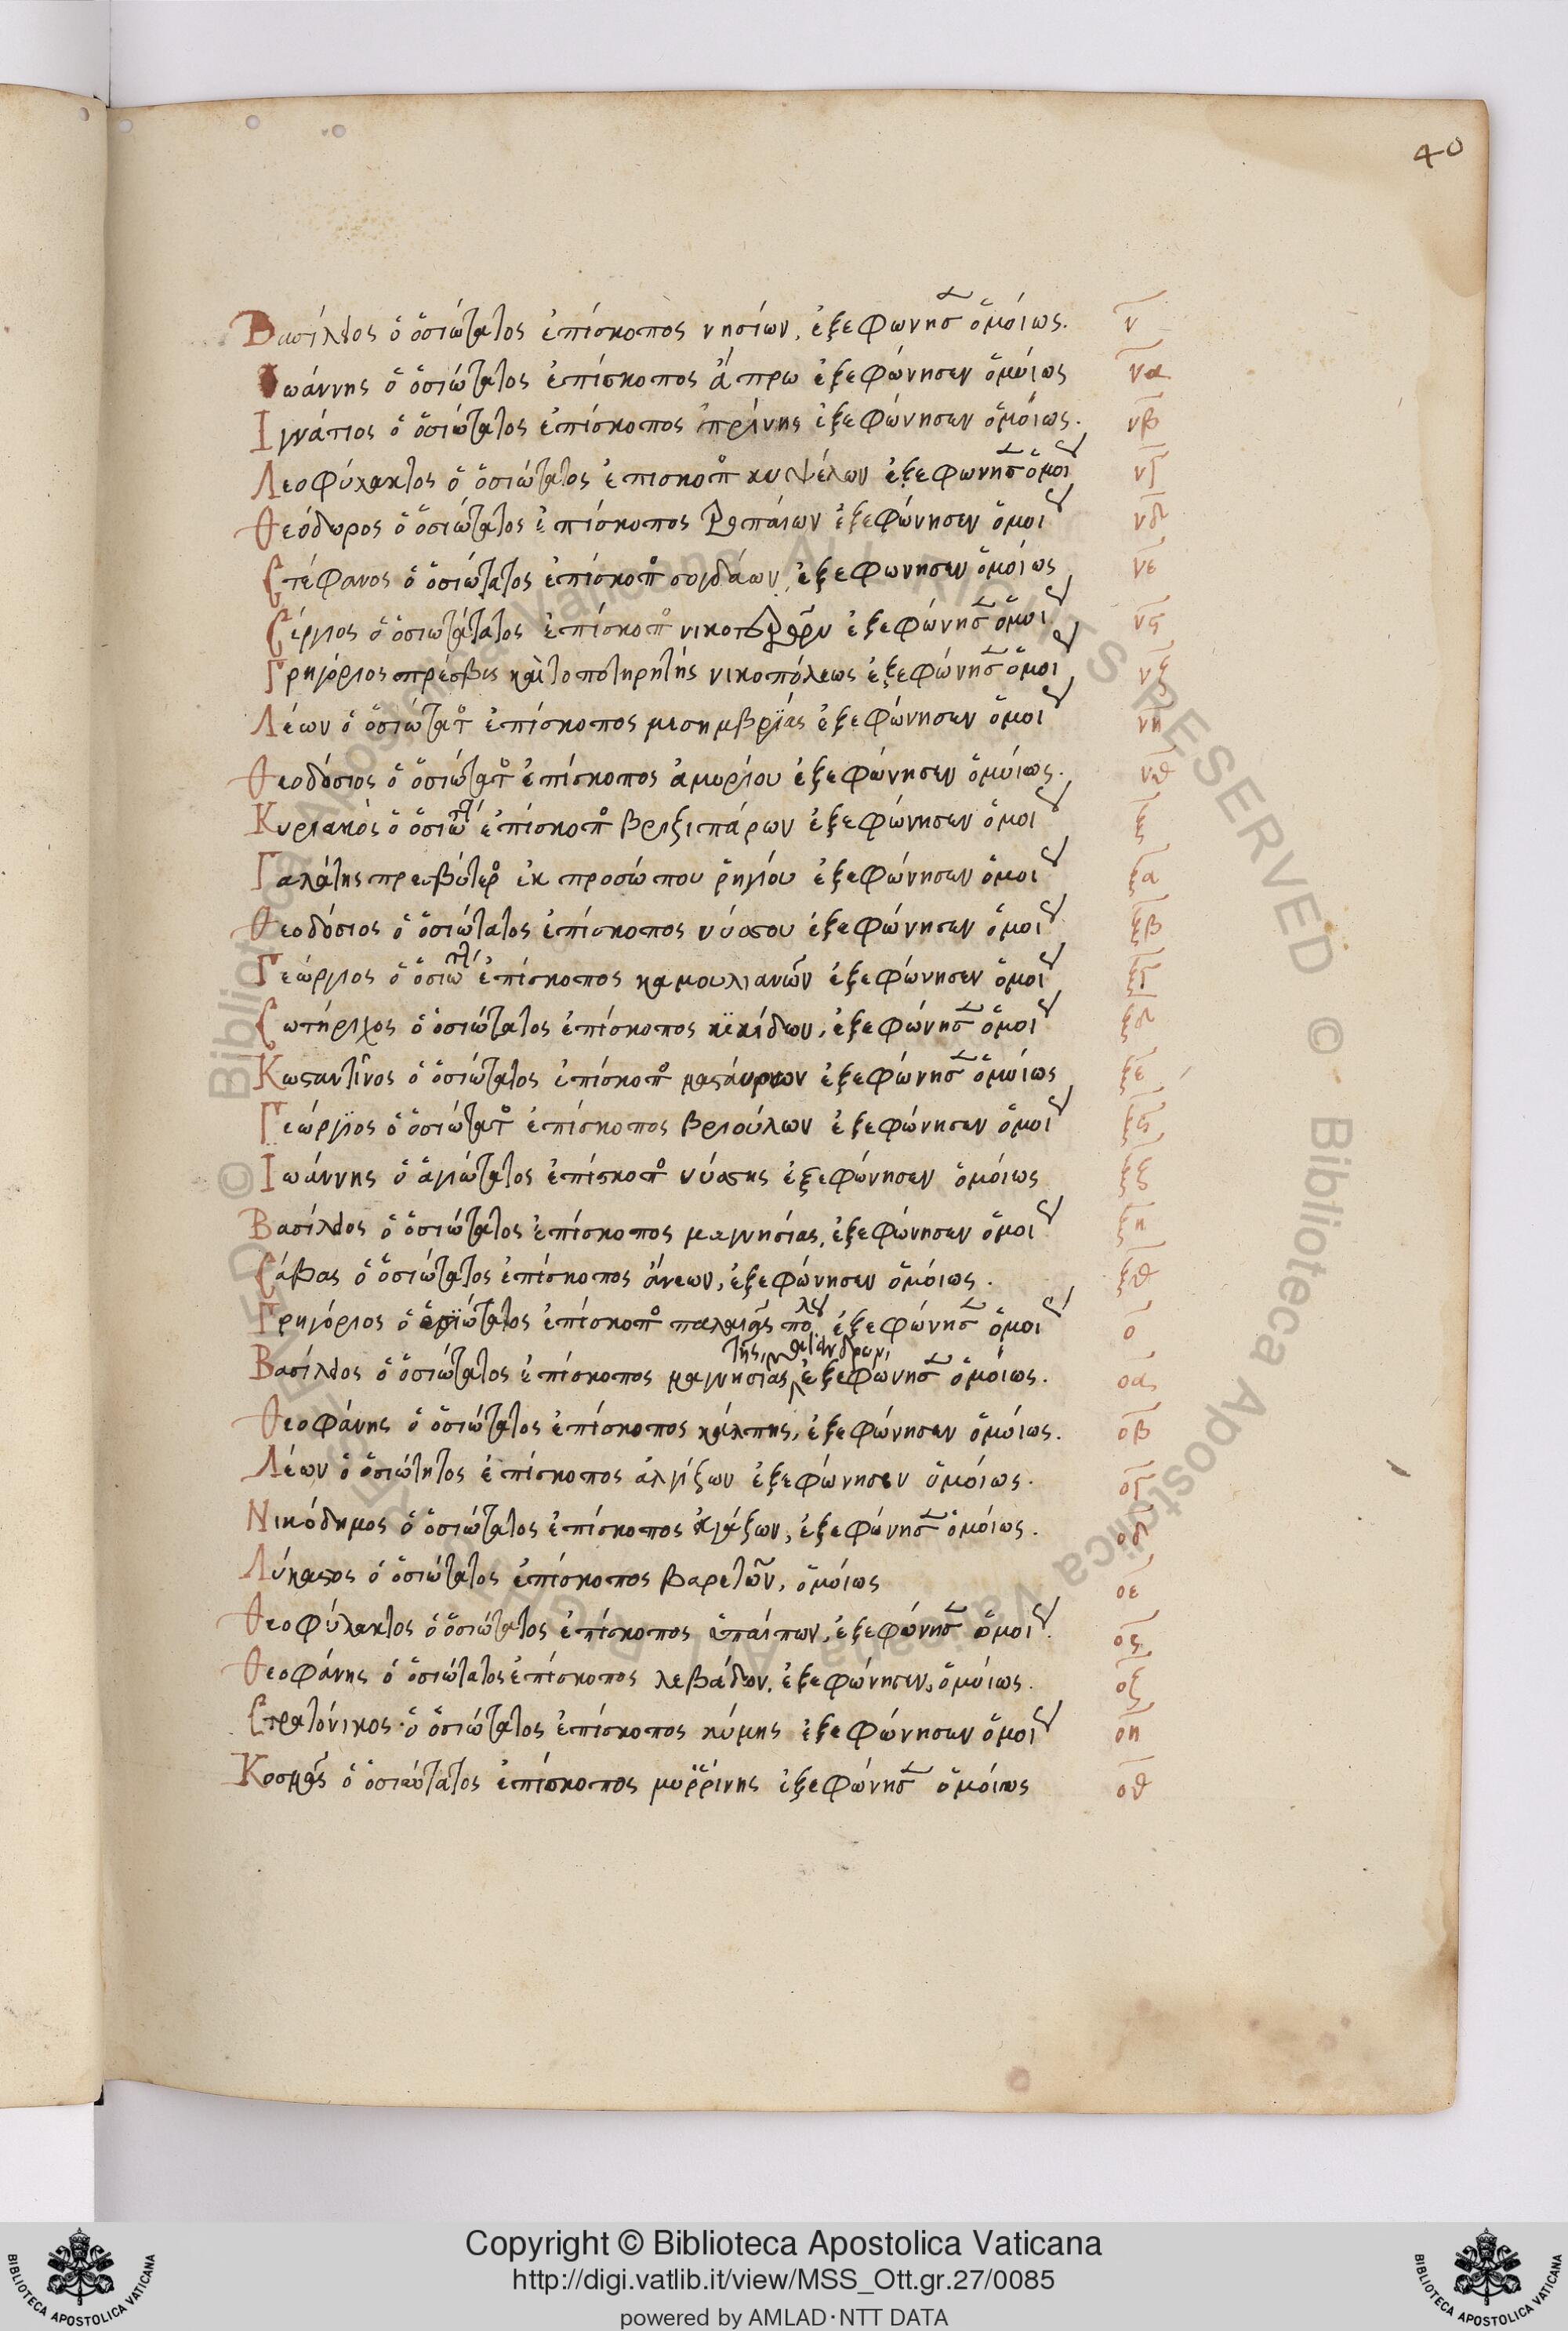 40
Βασίλειος ὁ ὁσιώτατος ἐπίσκοπος νησίων, ἐξεφώνησ ὁμοίως. ν
Ἰωάννης ὁ ὁσιώτατος ἐπίσκοπος ἄπρω ἐξεφώνησεν ὁμοίως να
Ἰγνάτιος ὁ ὁσιώτατος ἐπίσκοπος πρίνης ἐξεφώνησεν ὁμοίως. νβ
Λεοφύλακτος ὁ ὁσιώτατος ἐπισκοπ κυψέλων ἐξεφώνησ ὁμοι νγ
Θεόδωρος ὁ ὁσιώτατος ἐπίσκοπος ἐξεφώνησεν ὁμοι νδ
Στέφανος ὁ ὁσιώτατος ἐπίσκοπ σουδάων, ἐξεφωνησεν ὁμοίως νε
Σέργιος ὁ ὁσιωτάτατος ἐπίσκοπ ἐξεφώνησ ὁμοι νς
Γρηγόριος πρέσβις καὶ τοποτηρητής νικοπόλεως ἐξεφώνησ ὁμοι νζ
Λέων ὁ ὁσιώτατ ἐπίσκοπος μεσημβρίας ἐξεφώνησεν ὁμοι νη
Θεοδόσιος ὁ ὁσιώτατ ἐπίσκοπος ἀμορίου ἐξεφώνησεν ὁμοίως. νθ
Κυριακὸς ὁ ὁσιώτ ἐπίσκοπ βριξιπάρων ἐξεφώνησεν ὁμοι ξ
Γαλάτης πρεσβύτερ ἐκ προσώπου ῥηγίου ἐξεφώνησεν ὁμοι ξα
Θεοδόσιος ὁ ὁσιώτατος ἐπίσκοπος νύσσου ἐξεφώνησεν ὁμοι ξβ
Γεώργιος ὁ ὁσιώτ ἐπίσκοπος καμουλιανῶν ἐξεφώνησεν ὁμοι ξγ
Σωτήριχος ὁ ὁσιώτατος ἐπίσκοπος κϊκίδων, ἐξεφώνησ ὁμοι ξδ
Κωσταντῖνος ὁ ὁσιώτατος ἐπίσκοπ μασταύρων ἐξεφώνησ ὁμοίως ξε
Γεώργιος ὁ ὁσιώτατ ἐπίσκοπος βριούλων ἐξεφώνησεν ὁμοι ξς
Ἰωάννης ὁ ἁγιώτατος ἐπίσκοπ νύσσης ἐξεφώνησεν ὁμοίως ξζ
Βασίλειος ὁ ὁσιώτατος ἐπίσκοπος μαγνησίας, ἐξεφώνησεν ὁμοι ξη
Σάβας ὁ ὁσιώτατος ἐπίσκοπος ἀνέων, ἐξεφώνησεν ὁμοίως. ξθ
Γρηγόριος ὁ ἁγιώτατος ἐπίσκοπ παλαιᾶς πολ ἐξεφώνησ ὁμοι ο
Βασίλειος ὁ ὁσιώτατος ἐπίσκοπος μαγνησίας ἐξεφώνησ ὁμοίως. οα
Θεοφάνης ὁ ὁσιώτατος ἐπίσκοπος κάλπης, ἐξεφώνησεν ὁμοίως. οβ
Λέων ὁ ὁσιώτητος ἐπίσκοπος ἀλγίζων ἐξεφώνησεν ὁμοίως. ογ
Νικόδημος ὁ ὁσιώτατος ἐπίσκοπος ἐξεφώνησ ὁμοίως. οδ
Λύκαστος ὁ ὁσιώτατος ἐπίσκοπος βαρετῶν, ὁμοίως οε
Θεοφύλακτος ὁ ὁσιώτατος ἐπίσκοπος ὑπαίπων, ἐξεφώνησ ὁμοι. ος
Θεοφάνης ὁ ὁσιώτατος ἐπίσκοπος λεβάδων, ἐξεφώνησεν, ὁμοίως. οζ
Στρατόνικος ὁ ὁσιώτατος ἐπίσκοπος κύμης ἐξεφώνησεν ὁμοι οη
Κοσμᾶς ὁ ὁσιώτατος ἐπίσκοπος μυρρίνης ἐξεφώνησ ὁμοίως οθ
Copyright © Biblioteca Apostolica Vaticana
http://digi.vatlib.it/view/MSS_Ott.gr.27/0085
powered by AMLAD·NTT DATA